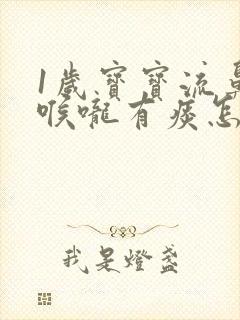 1歲寶寶流鼻
喉嚨有痰怎
我是燈盞